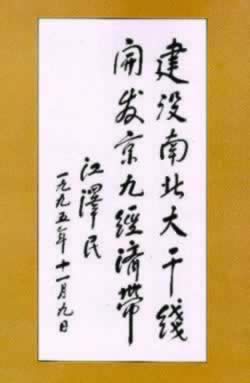 建设南北大干线
開发京九經濟帶
江澤民
一九九五年十一月九日